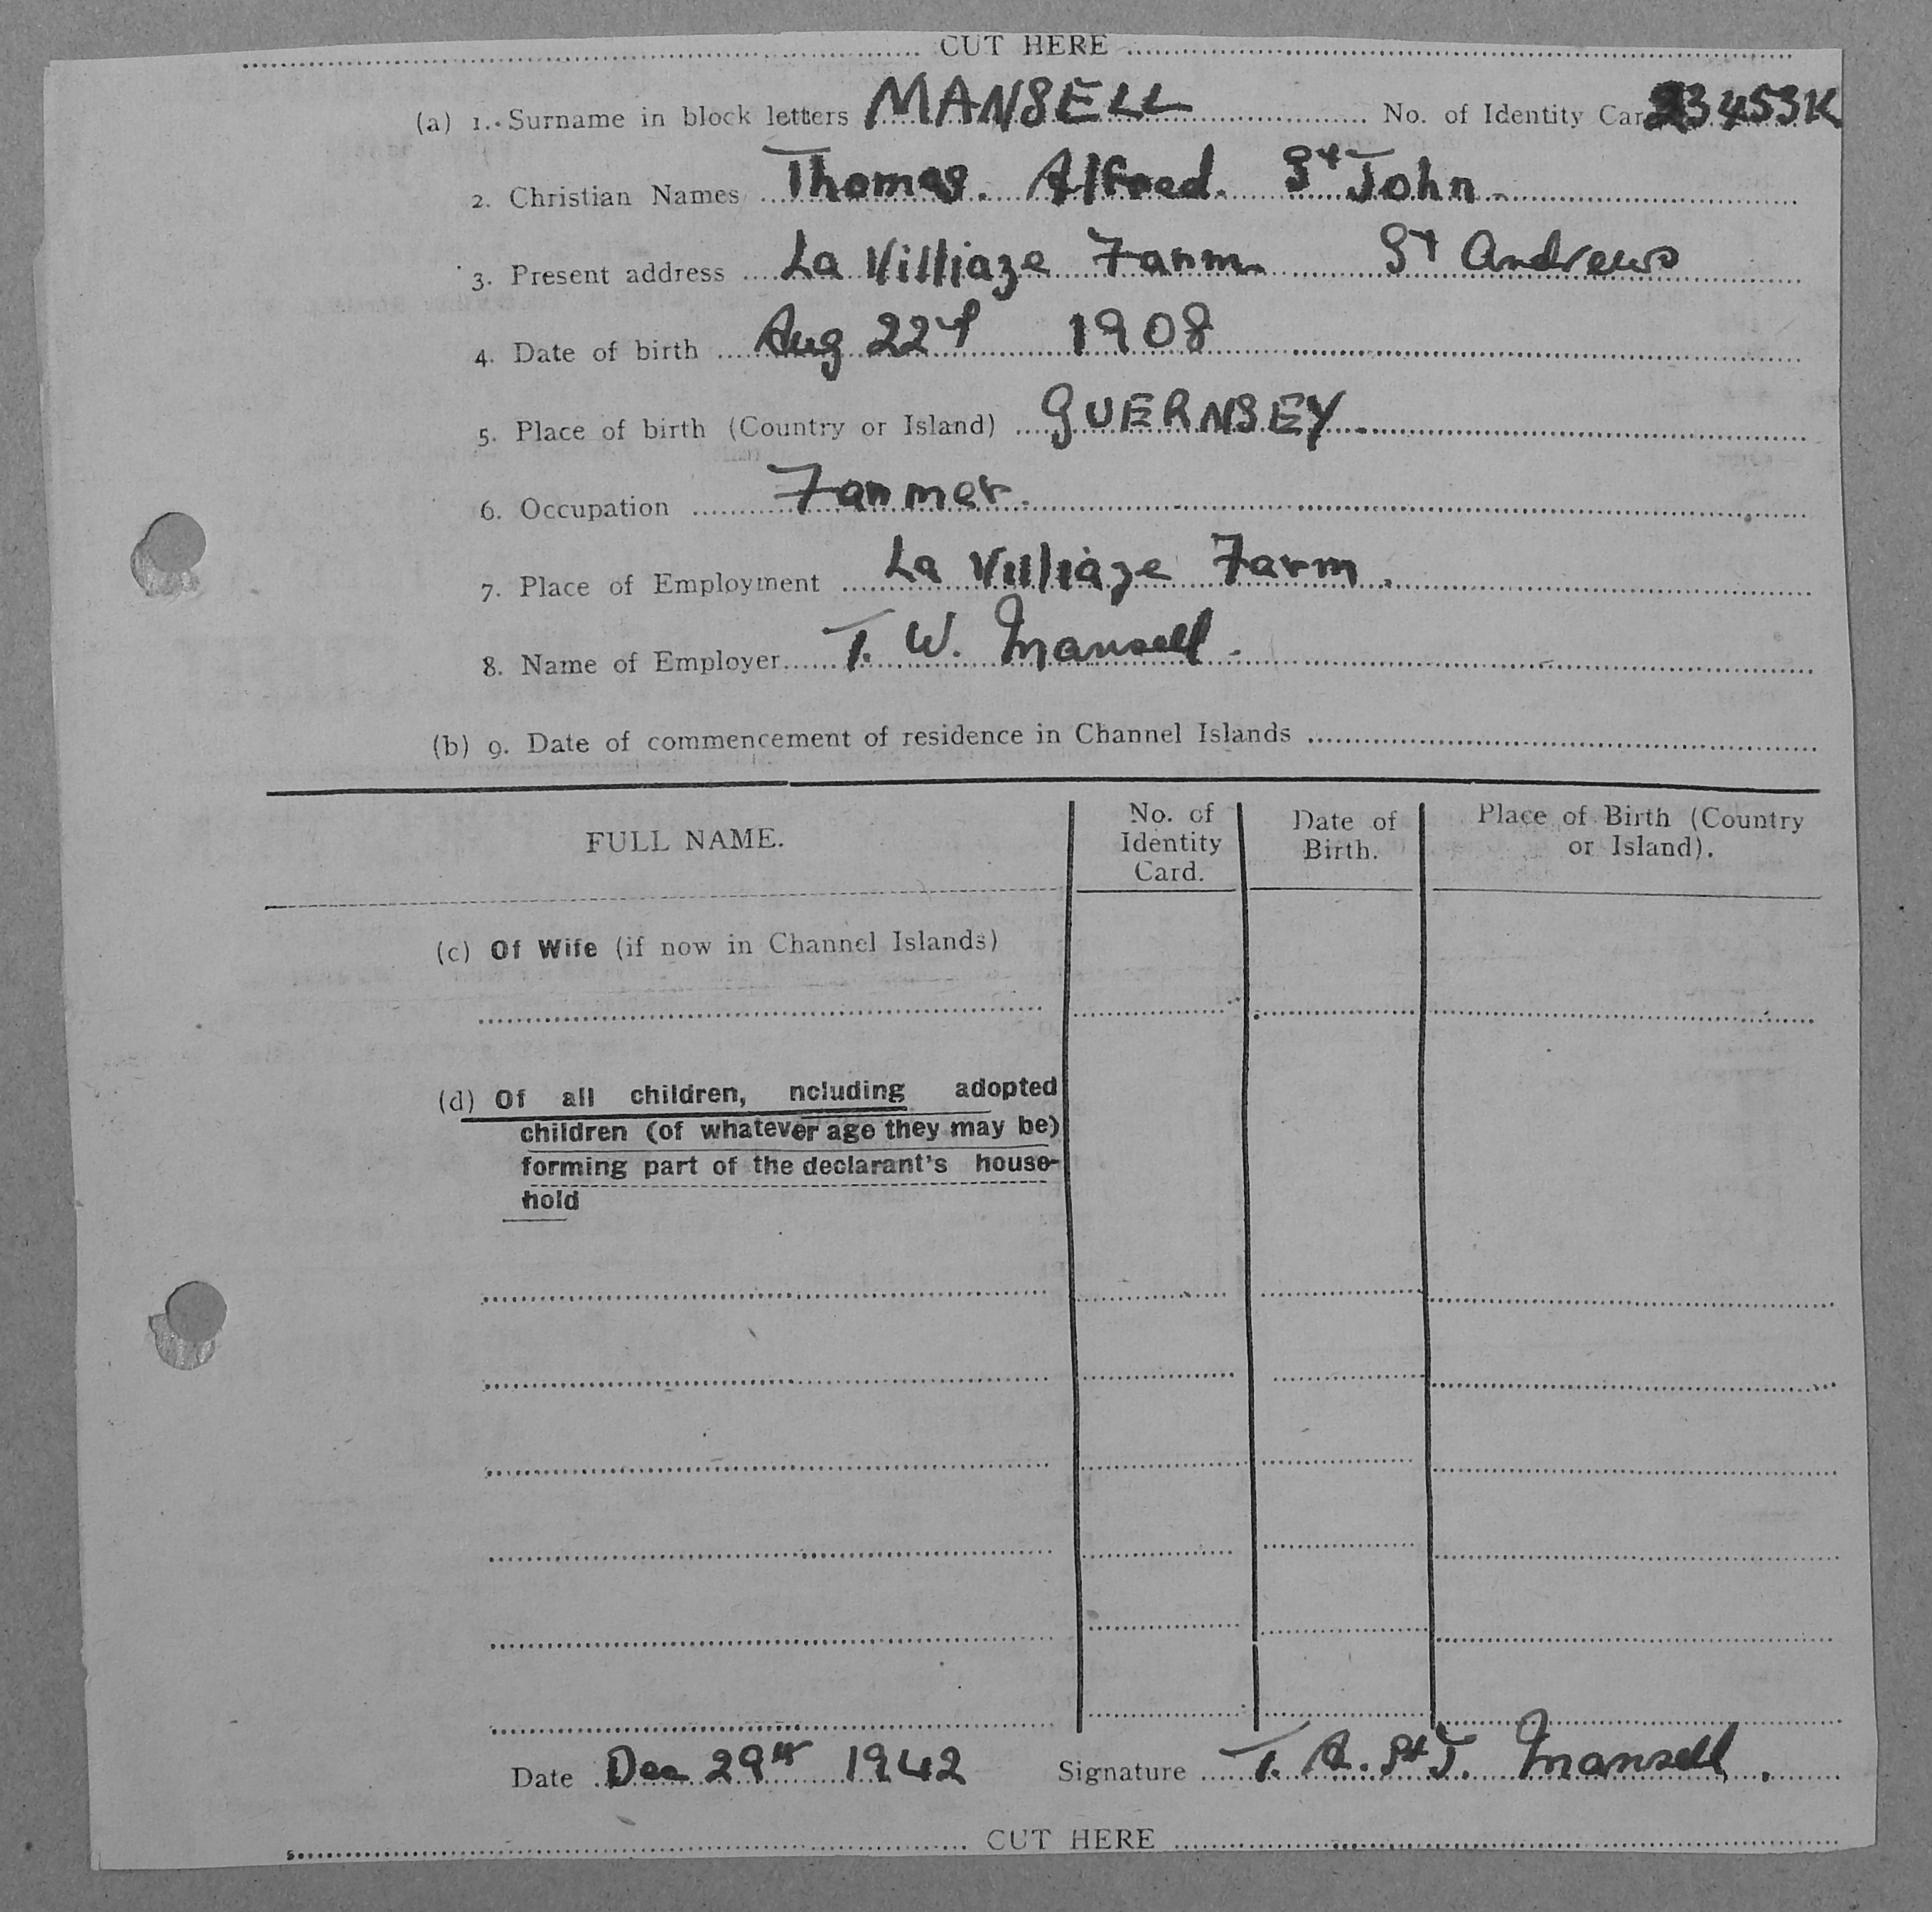 CUT HERE
(a) 1. Surname in block letters MANSELL No. of Identity Car 23453K
2. Christian Names Thomas. Alfred. St John.
3. Present address La Villiaze Farm St Andrews
4. Date of birth Aug 22nd 1908
5. Place of birth (Country or Island) GUERNSEY
6. Occupation Farmer.
7. Place of Employment La Villiaze Farm.
8. Name of Employer T. W. Mansell.
(b) 9. Date of commencement of residence in Channel Islands
FULL NAME. No. of Identity Card. Date of Birth. Place of Birth (Country or Island).
(c) Of Wife (if now in Channel Islands)
(d) Of all children, ncluding adopted
children (of whatever age they may be)
forming part of the declarant's house-
hold
Date Dec 29th 1942 Signature T. A. St J. Mansell.
CUT HERE